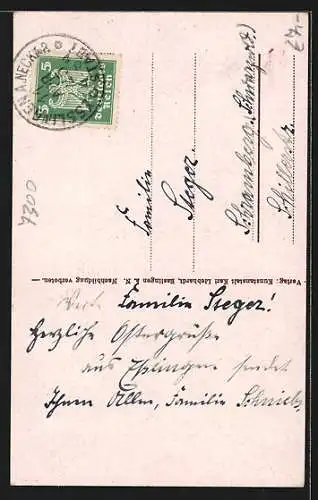 ESSLINGEN A. NECKAR
5 5
Deutsches
Reich
Familie
Steger
Schramberg (Schwarzwald)
Schillerstr.
27,-
4200
Verlag: Kunstanstalt Karl Liebhardt, Esslingen a. N. Nachbildung verboten.
Werte Familie Steger!
Herzliche Ostergrüße
aus Eßlingen sendet
Ihnen Allen, Familie